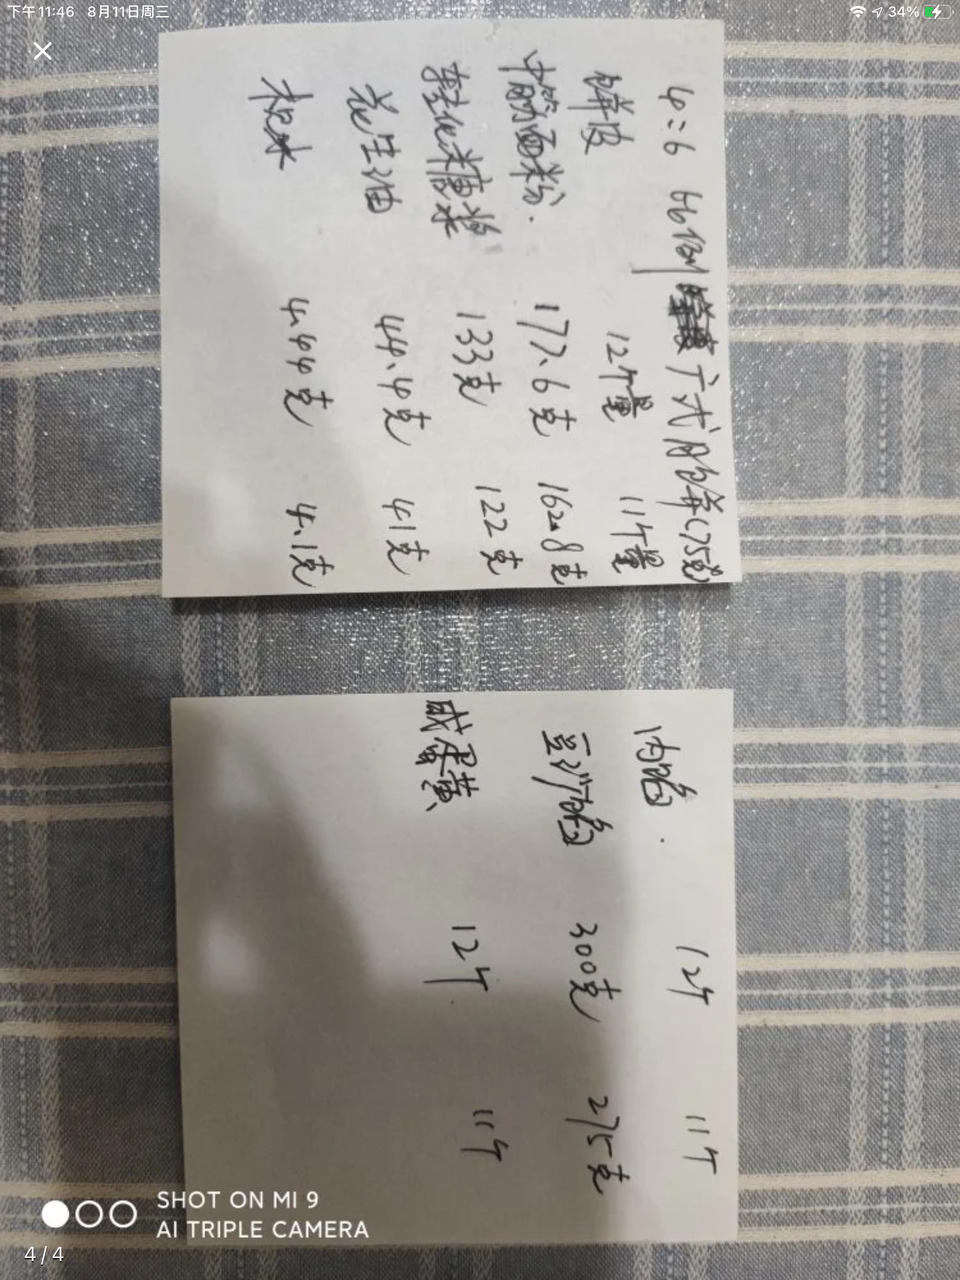 下午11:46 8月11日周三 34%
4:6 的比例 广式月饼(75克)
饼皮 12个量 11个量
中筋面粉. 177.6克 162.8克
转化糖浆 133克 122克
花生油 44.4克 41克
枧水 4.44克 4.1克
内馅 12个 11个
豆沙馅 300克 275克
咸蛋黄 12个 11个
SHOT ON MI 9
AI TRIPLE CAMERA
4/4